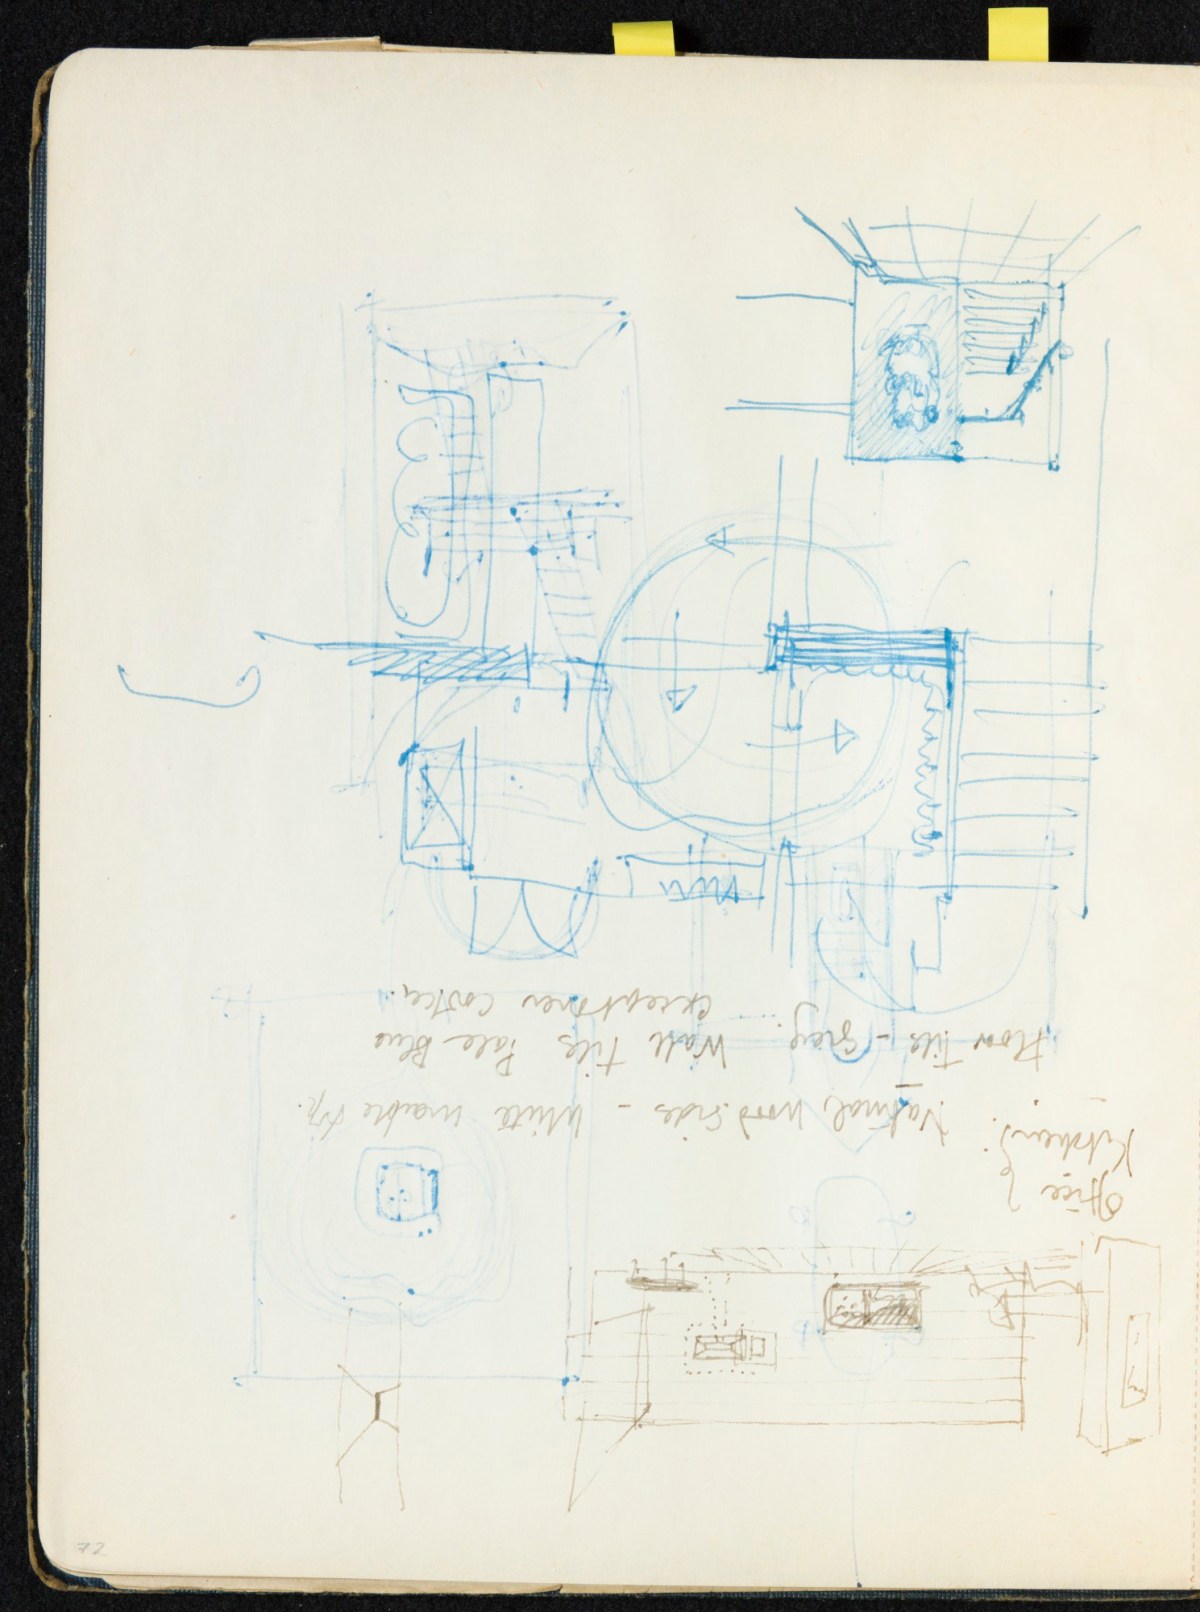 Office
Kitchen. Natural wood sides - White marble top.
Floor tiles - Grey. Wall tiles Pale Blue
72